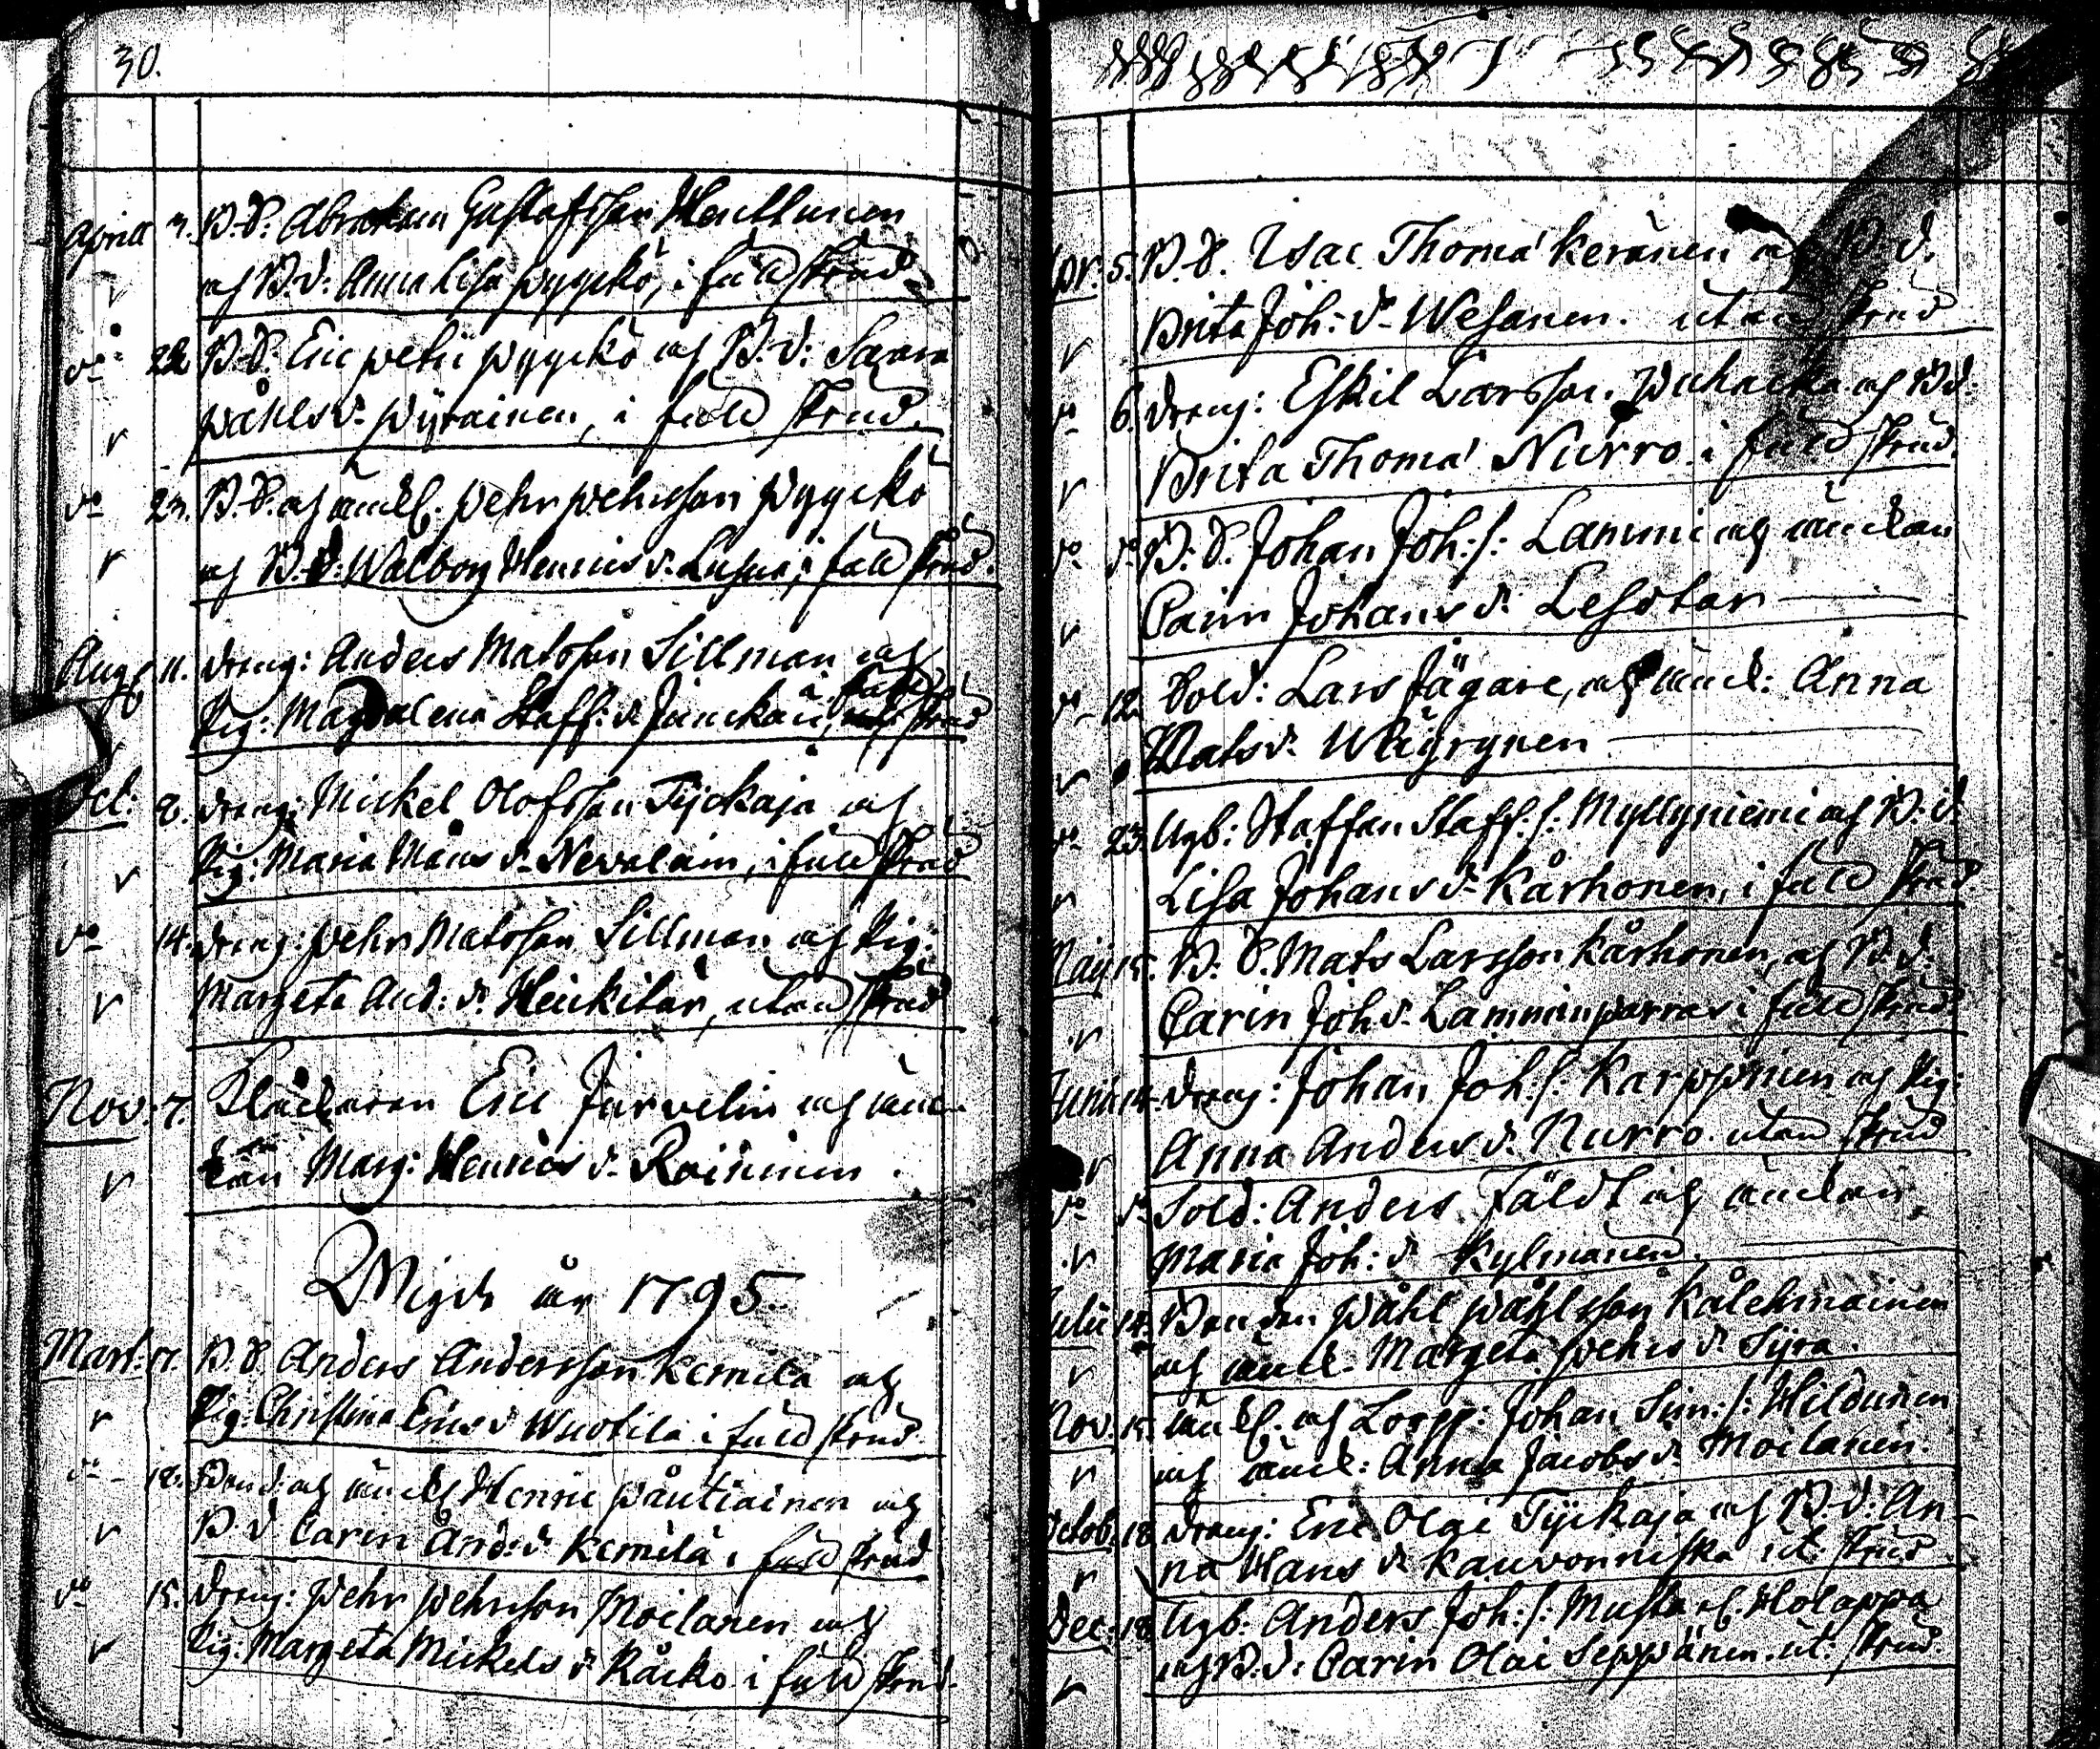 30.
Aprill 3. B.S. Abraham Gustafsson Hentturinen
och B.d: Anna Lisa Pyyckö, i full skrud
do 22 B.S. Eric Petri Pyyckö och B.d: Saara
Påhls d. Pyrainen, i full skrud.
do 23. B.S. och änckl. Pehr Pehrsson Pyyckö
och B.d: Walborg Henrics d. i full skrud.
Aug 11. dreng: Anders Matsson Sillman och
Pig: Magdalena Staff: d. Junckari, i full skrud
Oct: 2. dreng: Mickel Olofsson Tyckäja och
Pig: Maria Måns d. Nevalain, i full skrud
do 14. dreng: Pehr Matsson Sillman och Pig:
Margeta And: d. Heickitär, utan skrud
Nov: 7. Klåckaren Eric Järvelin och änc-
kan Marg: Henrics d. Roininen.
Wigde år 1795.
Mart: 17. B.S. Anders Andersson Kemilä och
Pig: Christina Erics d Wuotila i full skrud.
do 18. Bond: och änckl Henric Påutiainen och
B.d Carin And: d. Kemilä i full skrud
do 15. dreng: Pehr Pehrsson Moilanen och
Pig: Margeta Mickels d. Råcko i full skrud.
Apr. 5. B.S. Isac Thomæ Keränen och B.d.
Brita Joh: d. Wesanen. utan skrud
do 6. dreng: Eskil Larsson Puhacka och B.d:
Brita Thomæ Nurro i full skrud.
do do B.S. Johan Joh: s: Lammi och änckan
Carin Johans d. Lesotar
do 12 Sold: Lars Jägare, och änck: Anna
Mats d. Wäyrynen
do 23. Nyb: Staffan Staff: s: Myllyniemi och B.d
Lisa Johans d. Kårhonen, i full skrud
Maij 15. B.S. Mats Larsson Kårhonen, och B.d:
Carin Joh d. Lamminparras i full skrud
Junii 14. dreng: Johan Joh: s: Karppinen och Pig:
Anna Anders d. Nurro. utan skrud
do do Sold: Anders Fäldt och änckan
Maria Joh: d. Kylmänen.
Julii 12. Bonden Påhl Påhlsson Kålehmainen
och änck. Margeta Pehrs d. Syra.
Nov. 15. änckl. och Lorpp: Johan Sim: s: Hildunen
och änck: Anna Jacobs d. Moilanen.
Octob. 18. dreng: Eric Olai Tyckäja och B.d: An-
na Hans d. Kauvonniska ut. skrud
Dec: 18. Nyb: Anders Joh: s: Musta el. Holappa
och B.d: Carin Olai Seppänen. ut. skrud.